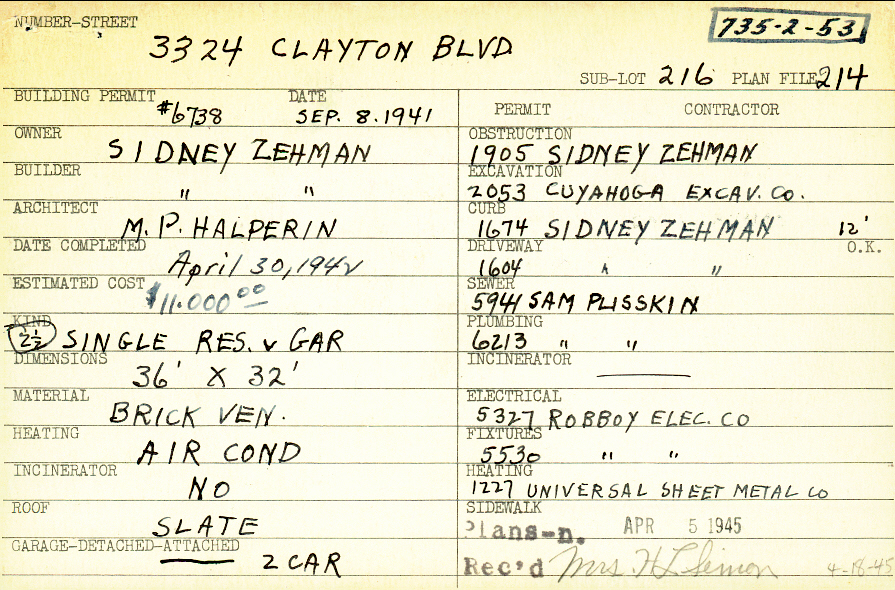 NUMBER-STREET
735-2-53
3324 CLAYTON BLVD
SUB-LOT 216 PLAN FILE 214
BUILDING PERMIT #6738 DATE SEP. 8. 1941
OWNER SIDNEY ZEHMAN
BUILDER " "
ARCHITECT M. P. HALPERIN
DATE COMPLETED April 30, 1942
ESTIMATED COST $11.000 00
KIND 2½ SINGLE RES. v GAR
DIMENSIONS 36' X 32'
MATERIAL BRICK VEN.
HEATING AIR COND
INCINERATOR NO
ROOF SLATE
GARAGE-DETACHED-ATTACHED 2 CAR
PERMIT CONTRACTOR
OBSTRUCTION 1905 SIDNEY ZEHMAN
EXCAVATION 2053 CUYAHOGA EXCAV. CO.
CURB 1674 SIDNEY ZEHMAN 12'
DRIVEWAY 1604 " " O.K.
SEWER 5941 SAM PLISSKIN
PLUMBING 6213 " "
INCINERATOR
ELECTRICAL 5327 ROBBOY ELEC. CO
FIXTURES 5530 " "
HEATING 1227 UNIVERSAL SHEET METAL CO
SIDEWALK
Plans-n. APR 5 1945
Rec'd Mrs. H L Simon 4-18-45